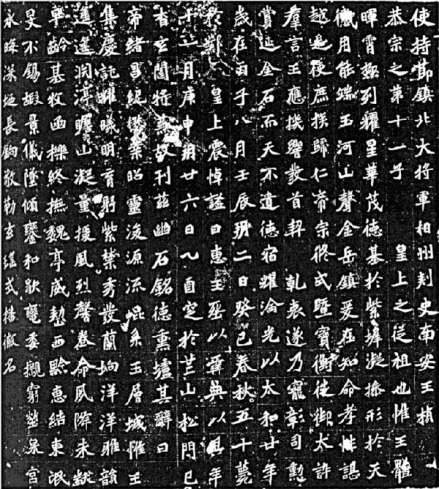 使持節鎮北大將軍相州刺史南安王楨
恭宗之第十一子 皇上之從祖也惟王體
暉霄極列耀星華茂德基於紫墀凝操形於天
儀用能端玉河山聲金岳鎮爰在知命孝性諶
越是使庶族歸仁帝宗攸式暨寶衡徙御太訊
羣言王應機響發首契 乾衷遂乃寵彰司勳
賞延金石而天不遺德宿耀淪光以太和廿年
歲在丙子八月壬辰朔二日癸巳春秋五十薨
於鄴 皇上震悼諡曰惠王葬以彝典以其年
十一月庚申朔廿六日乙酉窆於芒山松門已
杳玄闥將蕪故刊茲幽石銘德熏壚其辭曰
帝緒昌紀懋業昭靈浚源流崐系玉層城惟王
集慶託耀曦明育躬紫禁秀發蘭坰洋洋雅韻
遙遙淵渟瞻山凝量援風烈馨卷命夙降未黻
早齡基牧函櫟終撫魏亭威整西黔惠結東氓
旻不錫嘏景儀墜傾鑾和歇轡委櫬窮塋泉宮
永晦深埏長扃敬勒玄瑤式播徽名